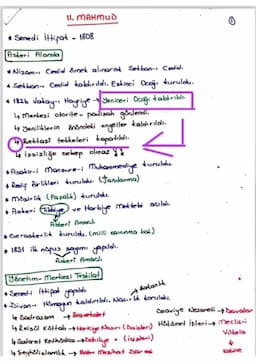 II. MAHMUD
①
* Senedi İttifat - 1808
Askeri Alanda
* Nizam-ı Cedid örnek alınarak Sekban-ı Cedid.
* Sekban-ı Cedid kaldırıldı. Eskinci Ocağı kuruldu.
* 1826 Vakay-ı Hayriye → Yeniçeri Ocağı kaldırıldı.
↳ Merkezi otorite - padişah güçlendi.
↳ Yeniliklerin önündeki engeller kaldırıldı.
↳ Bektaşi tekkeleri kapatıldı.
↳ İşsizliğe sebep olmaz !!
* Asakir-i Mansure-i Muhammediye kuruldu.
* Redif Birlikleri kuruldu. (Jandarma)
* Müşirlik (Paşalık) kuruldu.
* Askeri Tıbbiye ve Harbiye Mektebi açıldı.
↳ Askeri Amaçlı
* Seraskerlik kuruldu. (milli savunma bak.)
* 1831 ilk nüfus sayımı yapıldı.
↳ Askeri Amaçlı
Yönetim - Merkezi Teşkilat
* Senedi İttifat yapıldı.
* Divan-ı Hümayun kaldırıldı. Nazırlık kuruldu.
Bakanlık
↳ Sadrazam → Başvekalet
↳ Reisül Küttab → Hariciye Nazırı (Dışişleri)
↳ Sadaret Kethüdası → Dahiliye - (İçişleri)
↳ Şeyhülislamlık →
Nezareti → Davalar
Hukuksal İşler → Meclisi
Vükela
↓
kabine